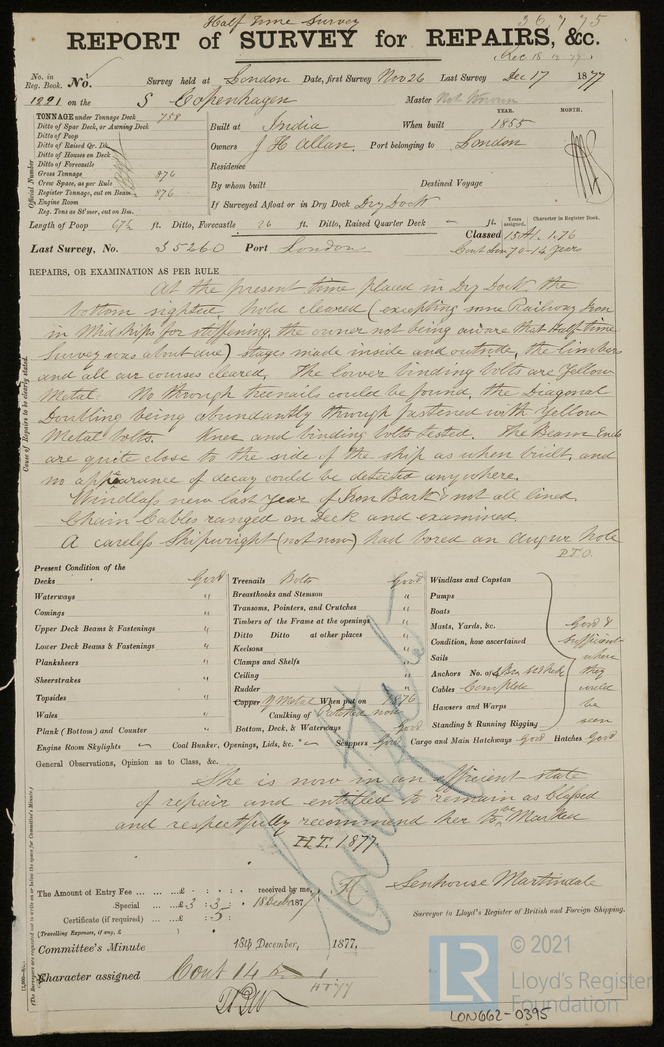 Half Time Survey
36775
REPORT of SURVEY for REPAIRS, &c.
Rec 18 12 77
No. in Reg. Book. No. Survey held at London Date, first Survey Nov 26 Last Survey Dec 17 1877
1221 on the S Copenhagen Master Not Known
TONNAGE under Tonnage Deck 758
Ditto of Spar Deck, or Awning Deck
Ditto of Poop
Ditto of Raised Qr. Dk.
Ditto of Houses on Deck
Ditto of Forecastle
Gross Tonnage 876
Crew Space, as per Rule
Register Tonnage, cut on Beam 876
Engine Room
Reg. Tons as St'mer, cut on Bm.
Official Number
YEAR. MONTH.
Built at India When built 1855
Owners J H Allan. Port belonging to London
Residence
By whom built Destined Voyage
If Surveyed Afloat or in Dry Dock Dry Dock
Length of Poop 67½ ft. Ditto, Forecastle 26 ft. Ditto, Raised Quarter Deck — ft.
Years assigned. Character in Register Book.
Classed 15 A1. 1.76
Last Survey, No. 35260 Port London Cont Lon 70-14 years
REPAIRS, OR EXAMINATION AS PER RULE
Cause of Repairs to be clearly stated.
At the present time placed in Dry Dock, the
bottom sighted, hold cleared (excepting some Railway Iron
in Midships for stiffening, the owner not being aware that Half time
Survey was about due) stages made inside and outside, the limbers
and all air courses cleared. The lower binding bolts are Yellow
Metal. No through treenails could be found, the Diagonal
Doubling being abundantly through fastened with Yellow
Metal bolts. Knee and binding bolts tested. The Beam Ends
are quite close to the side of the ship as when built, and
no appearance of decay could be detected anywhere.
Windlass new last year of Iron Bark & not all lined.
Chain Cables ranged on Deck and examined.
A careless Shipwright (not now) had bored an augur hole
P.T.O.
Present Condition of the
Decks Good
Waterways "
Comings "
Upper Deck Beams & Fastenings "
Lower Deck Beams & Fastenings "
Planksheers "
Sheerstrakes "
Topsides "
Wales "
Plank (Bottom) and Counter "
Treenails Bolts Good
Breasthooks and Stemson "
Transoms, Pointers, and Crutches "
Timbers of the Frame at the openings "
Ditto Ditto at other places "
Keelsons "
Clamps and Shelfs "
Ceiling "
Rudder "
Copper Y Metal When put on 1876
Caulking of
Bottom, Deck, & Waterways Good
Windlass and Capstan
Pumps
Boats
Masts, Yards, &c.
Condition, how ascertained
Sails
Anchors No. of
Cables Complete
Hawsers and Warps
Standing & Running Rigging
Good & sufficient where they could be seen
Engine Room Skylights — Coal Bunker, Openings, Lids, &c. — Scuppers Good Cargo and Main Hatchways Good Hatches Good
General Observations, Opinion as to Class, &c.
She is now in an efficient state
of repair and entitled to remain as Classed
and respectfully recommend her to be Marked
H.T. 1877.
The Amount of Entry Fee ... £ : : received by me,
Special ... £3 : 3 : 18 Dec 1877
Certificate (if required) ... : 5 :
(Travelling Expenses, if any, £ )
Senhouse Martindale
Surveyor to Lloyd's Register of British and Foreign Shipping.
Committee's Minute 18th December, 1877,
Character assigned Cont 14
HT 77
(The Surveyors are requested not to write on or below the space for Committee's Minute.)
LR © 2021
Lloyd's Register
Foundation
LON662-0395